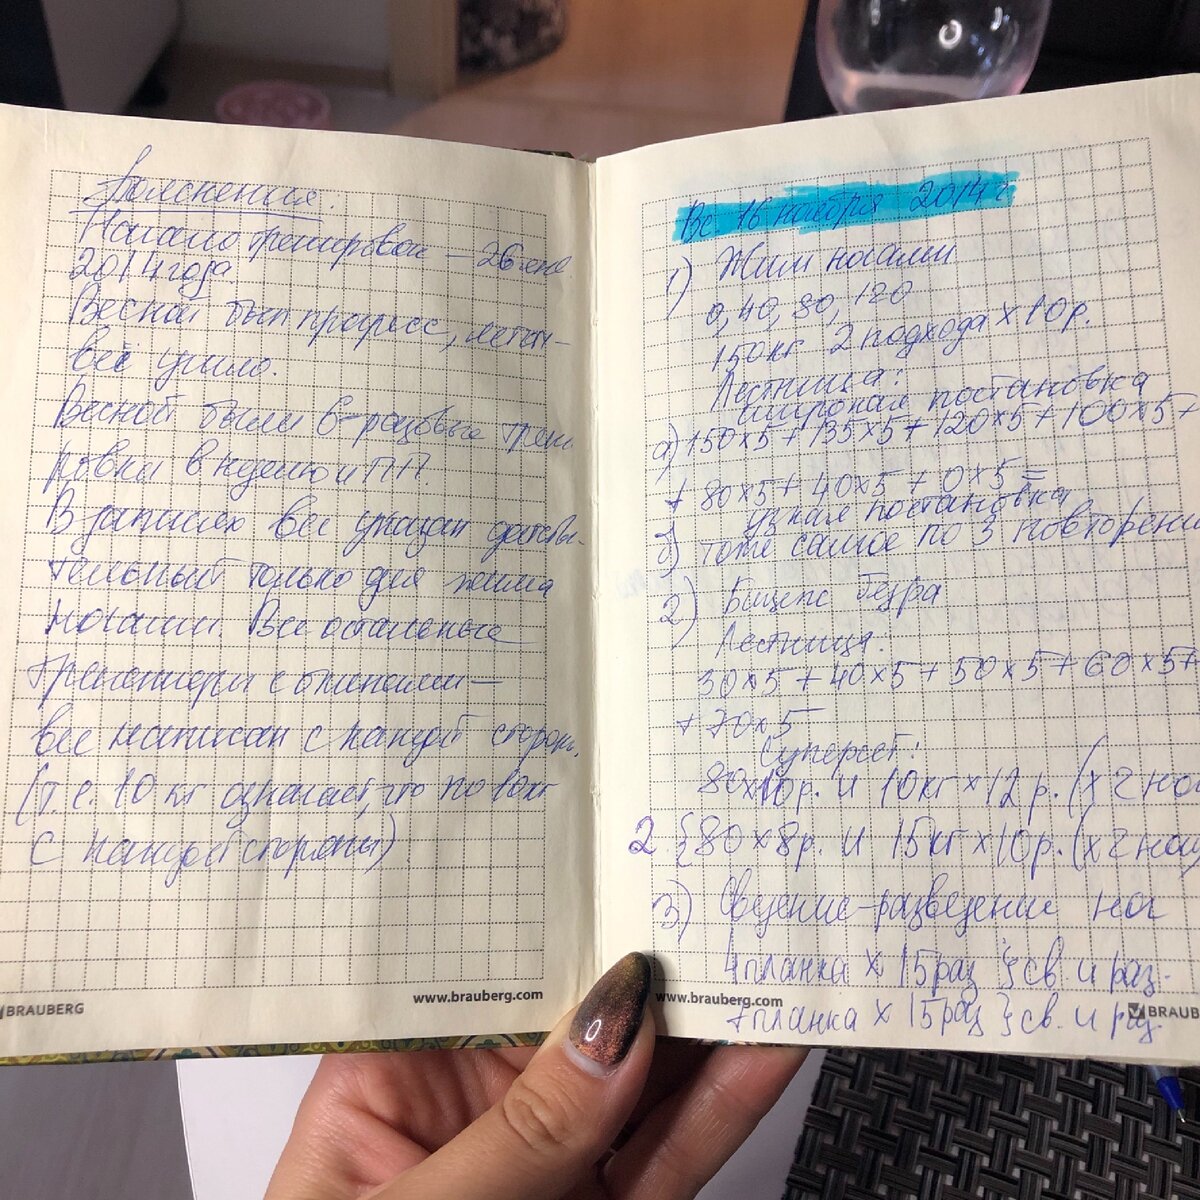 Пояснения.
Начало тренировок – 26 янв
2014 года.
Весной был прогресс, летом –
всё ушло.
Весной были 6-разовые трени
ровки в неделю и ПП.
В записях вес указан действи-
тельный только для жима
ногами. Все остальные
тренажёры с блинами –
вес написан с каждой стороны.
(т.е. 10 кг означает, что по 10 кг
с каждой стороны)
BRAUBERG
www.brauberg.com
Вс. 16 ноября 2014 г.
1) Жим ногами
0, 40, 80, 120
150кг 2 подхода х 10р.
Лестница:
широкая постановка
а) 150х5 + 135х5 + 120х5 + 100х5 +
+ 80х5 + 40х5 + 0х5 =
узкая постановка
б) тоже самое по 3 повторени
2) Бицепс бедра
Лестница:
30х5 + 40х5 + 50х5 + 60х5 +
+ 70х5
Суперсет:
80х10р. и 10кг х 12р. (х 2 ног
2 {80 х 8р. и 15кг х 10р. (х 2 ног
3) Сведение-разведение ног
4 планка х 15 раз } св. и раз-
7 планка х 15 раз } св. и раз
www.brauberg.com
BRAUB